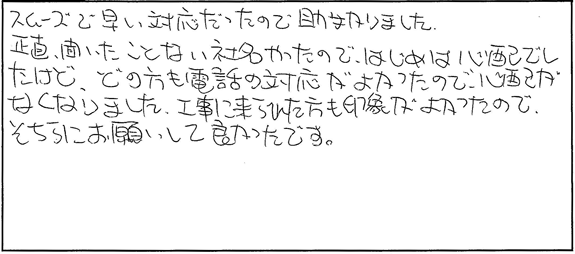 スムーズで早い対応だったので助かりました。
正直、聞いたことない社名だったので、はじめは心配でし
たけど、どの方も電話の対応がよかったので、心配が
なくなりました。工事に来られた方も印象がよかったので、
そちらにお願いして良かったです。